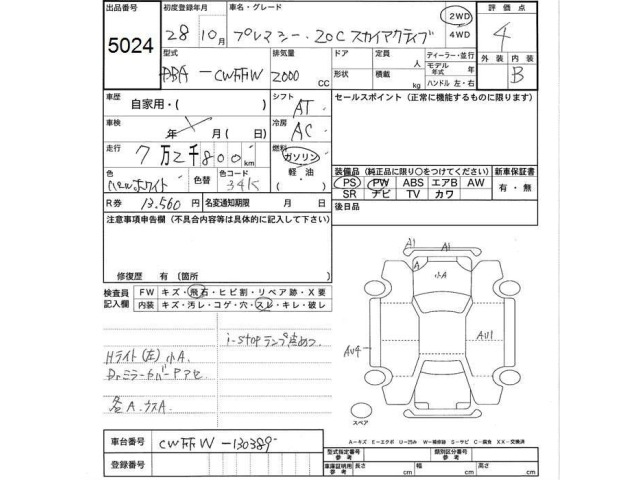 出品番号 5024
初度登録年月 28年 10月
車名・グレード プレマシー・20C スカイアクティブ
2WD
4WD
評価点 4
外装 内装 B
型式 DBA-CWFFW
排気量 2000 CC
ドア 形状
定員 人
積載 kg
ディーラー・並行
モデル年式 年
ハンドル 左・右
車歴 自家用・( )
シフト AT
車検 年 月 ( 日)
冷房 AC
走行 7万2千800km
燃料 ガソリン
軽油
( )
色 Newホワイト
色替
色コード 34K
R券 13,560 円
名変通知期限 月 日
セールスポイント (正常に機能するものに限ります)
装備品 (純正品に限り○をつけてください)
PS PW ABS エアB AW
SR ナビ TV カワ
新車保証書
有・無
後日品
注意事項申告欄 (不具合内容等は具体的に記入して下さい)
修復歴 有 (箇所 )
検査員記入欄
FW キズ・飛石・ヒビ割・リペア跡・X要
内装 キズ・汚レ・コゲ・穴・スレ・キレ・破レ
i-stopランプ点めつ
Hライト(左)小A
Drミラーカバー Pアセ
各A.ウスA
A1 A1
A 小A
AU4 AU1
スペア
A-キズ E-エクボ U-凹み W-補修跡 S-サビ C-腐食 XX-交換済
車台番号 CWFFW-130389
登録番号
型式指定番号 参考
類別区分番号 参考
車庫証明用 参考 長さ cm 幅 cm 高さ cm